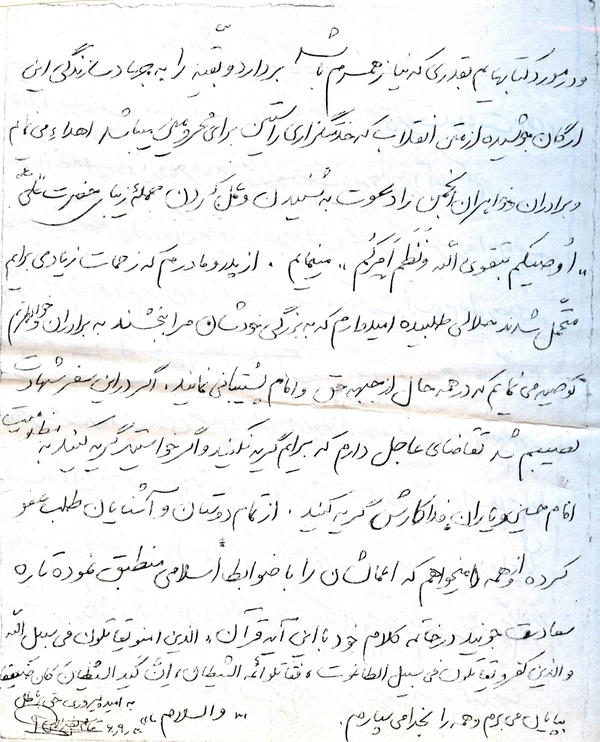 و در مورد کتابهایم بقدری که نیاز همسرم باشد بردارد و بقیه را به جهاد سازندگی این
ارگان جوشیده از متن انقلاب که خدمتگزاری راستین برای محرومین میباشد اهداء می نمایم
و برادران و خواهران انجمن را دعوت به شنیدن و عمل کردن جمله زیبای حضرت علی
«اُوصیکم بتقوی الله وَ نَظمِ اَمرِکُم» مینمایم. از پدر و مادرم که زحمات زیادی برایم
متحمل شدند حلالی طلبیده امیدوارم که به بزرگی خودشان مرا ببخشند به برادران و خواهرانم
توصیه می نمایم که در همه حال از جبهه حق و امام پشتیبانی نمایند. اگر در این سفر شهادت
نصیبم شد تقاضای عاجل دارم که برایم گریه نکنید و اگر خواستید گریه کنید به مظلومیت
امام حسین و یاران فداکارش گریه کنید. از تمام دوستان و آشنایان طلب عفو
کرده و از همه میخواهم که اعمالشان را با ضوابط اسلامی منطبق نموده تا ره
سعادت جویند در خاتمه کلام خود با این آیه قرآن، الذین امنو یقاتلون فی سبیل الله
والذین کفرو یقاتلون فی سبیل الطاغوت، فقاتلو ائمه الشیطان، اِنَّ کید الشیطان کان ضعیفا
بپایان می برم و همه را بخدا می سپارم. والسلام
به امید پیروزی حق بر باطل